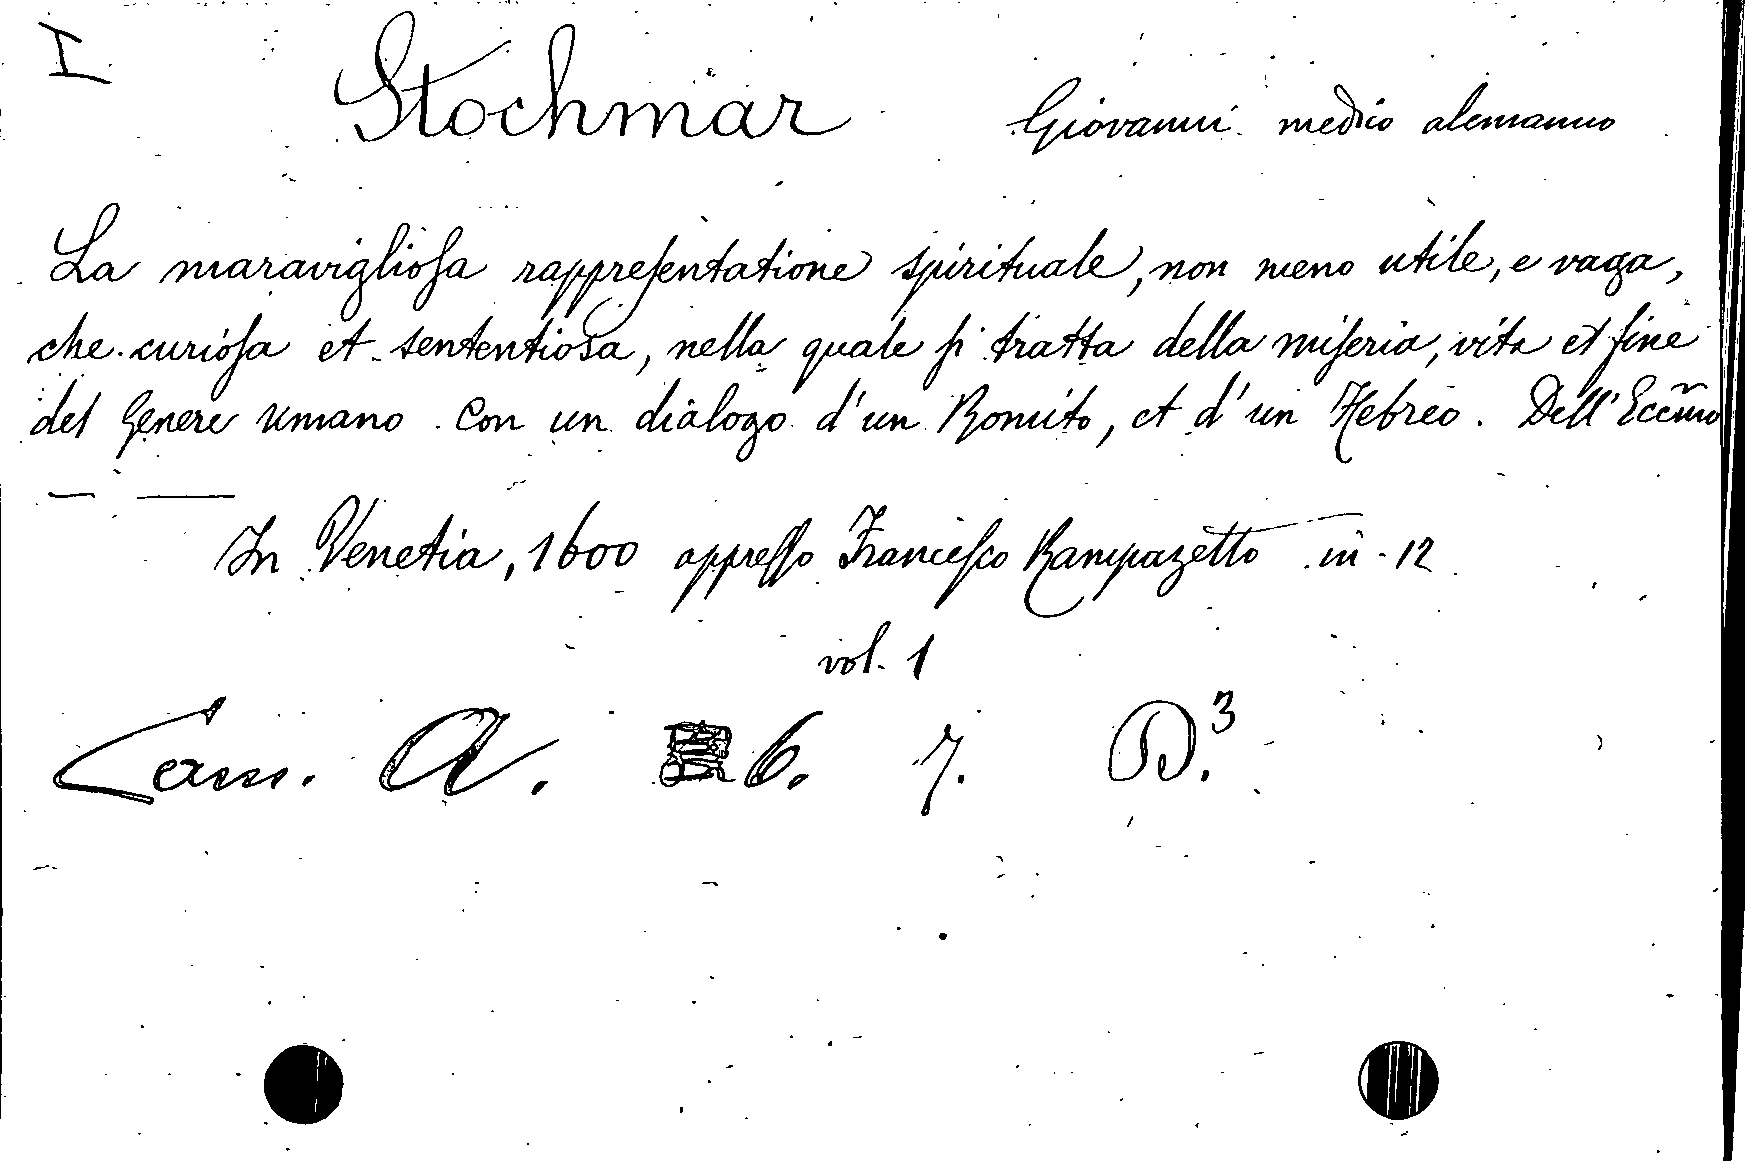 I
Stochmar Giovanni medico alemanno
La maraviglioſa rappreſentatione spirituale, non meno utile, e vaga,
che curioſa et sententiosa, nella quale ſi tratta della miſeria, vita et fine
del Genere Umano con un dialogo d'un Romito, et d'un Hebreo. Dell'Ecc̃mo
— —
In Venetia, 1600 appreſſo Franceſco Rampazetto in-12
vol. 1
Cam. A. 6. 7. D.³